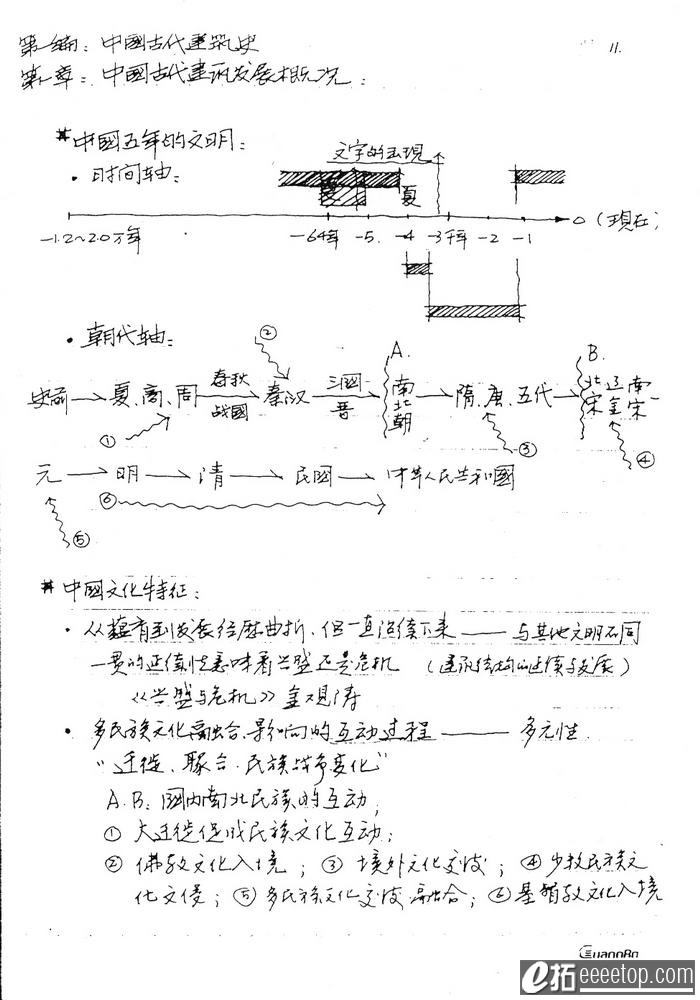 第一编：中國古代建筑史
11.
第一章：中國古代建筑发展概况：
# 中國五年的文明：
文字的出現
· 时间轴：
夏
0（現在）
-1.2~2.0万年 -6千年 -5. -4 -3千年 -2 -1
· 朝代轴：
② A. B.
史前→夏、商、周 春秋战國→秦汉 三國晋→南北朝→隋、唐、五代→北宋 辽金 南宋
① ③ ④
元→明→清→民國→中华人民共和國
⑥
⑤
# 中國文化特征：
· 从蕴育到发展经历曲折、但一直沿续下来——与其他文明不同
一贯的延续性意味着兴盛还是危机（建筑结构的延续与发展）
《兴盛与危机》金观涛
· 多民族文化融合、影响的互动过程——多元性.
“迁徙、聚合、民族战争变化”
A.B：國内南北民族的互动；
① 大迁徙促成民族文化互动；
② 佛教文化入境；③ 境外文化交流；④ 少数民族文
化交侵；⑤ 多民族文化交流融合；⑥ 基督教文化入境
GuangBo
e拓 eeeetop.com